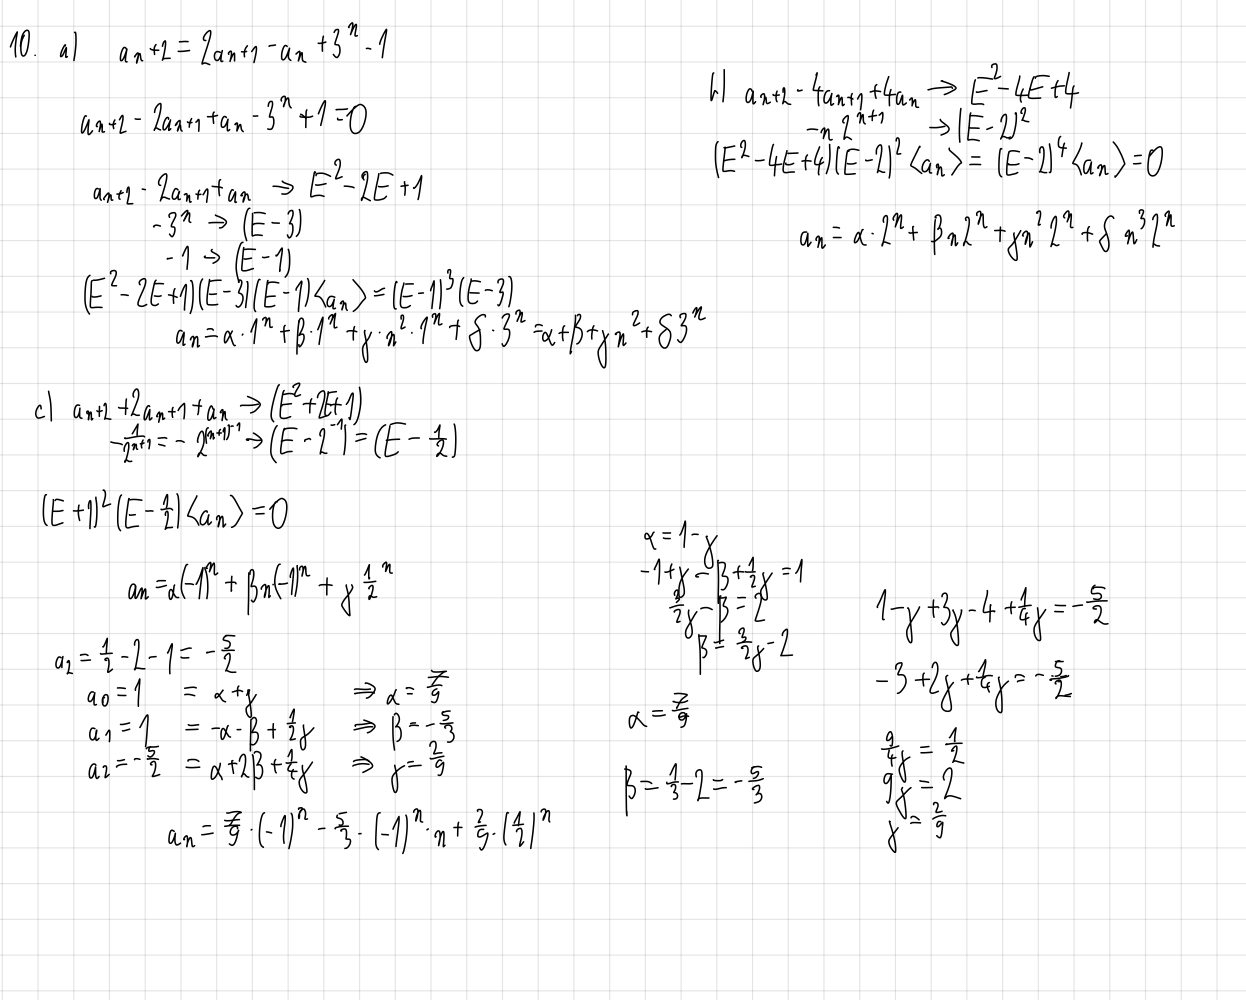 10. a) a_{n+2} = 2a_{n+1} - a_n + 3^n - 1
a_{n+2} - 2a_{n+1} + a_n - 3^n + 1 = 0
a_{n+2} - 2a_{n+1} + a_n → E^2 - 2E + 1
-3^n → (E-3)
-1 → (E-1)
(E^2 - 2E + 1)(E-3)(E-1)⟨a_n⟩ = (E-1)^3 (E-3)
a_n = α·1^n + β·1^n + γ·n^2·1^n + δ·3^n = α + β + γn^2 + δ3^n
b) a_{n+2} - 4a_{n+1} + 4a_n → E^2 - 4E + 4
-n 2^{n+1} → (E-2)^2
(E^2 - 4E + 4)(E-2)^2 ⟨a_n⟩ = (E-2)^4 ⟨a_n⟩ = 0
a_n = α·2^n + βn2^n + γn^2 2^n + δ n^3 2^n
c) a_{n+2} + 2a_{n+1} + a_n → (E^2 + 2E + 1)
-\frac{1}{2^{n+1}} = -2^{(n+1)^{-1}} → (E - 2^{-1}) = (E - \frac{1}{2})
(E+1)^2 (E - \frac{1}{2})⟨a_n⟩ = 0
a_n = α(-1)^n + βn(-1)^n + γ \frac{1}{2}^n
a_2 = \frac{1}{2} - 2 - 1 = -\frac{5}{2}
a_0 = 1 = α + γ ⇒ α = \frac{7}{9}
a_1 = 1 = -α - β + \frac{1}{2}γ ⇒ β = -\frac{5}{3}
a_2 = -\frac{5}{2} = α + 2β + \frac{1}{4}γ ⇒ γ = \frac{2}{9}
a_n = \frac{7}{9}·(-1)^n - \frac{5}{3}·(-1)^n·n + \frac{2}{9}·(\frac{1}{2})^n
α = 1 - γ
-1 + γ - β + \frac{1}{2}γ = 1
\frac{3}{2}γ - β = 2
β = \frac{3}{2}γ - 2
α = \frac{7}{9}
β = \frac{1}{3} - 2 = -\frac{5}{3}
1 - γ + 3γ - 4 + \frac{1}{4}γ = -\frac{5}{2}
-3 + 2γ + \frac{1}{4}γ = -\frac{5}{2}
\frac{9}{4}γ = \frac{1}{2}
9γ = 2
γ = \frac{2}{9}